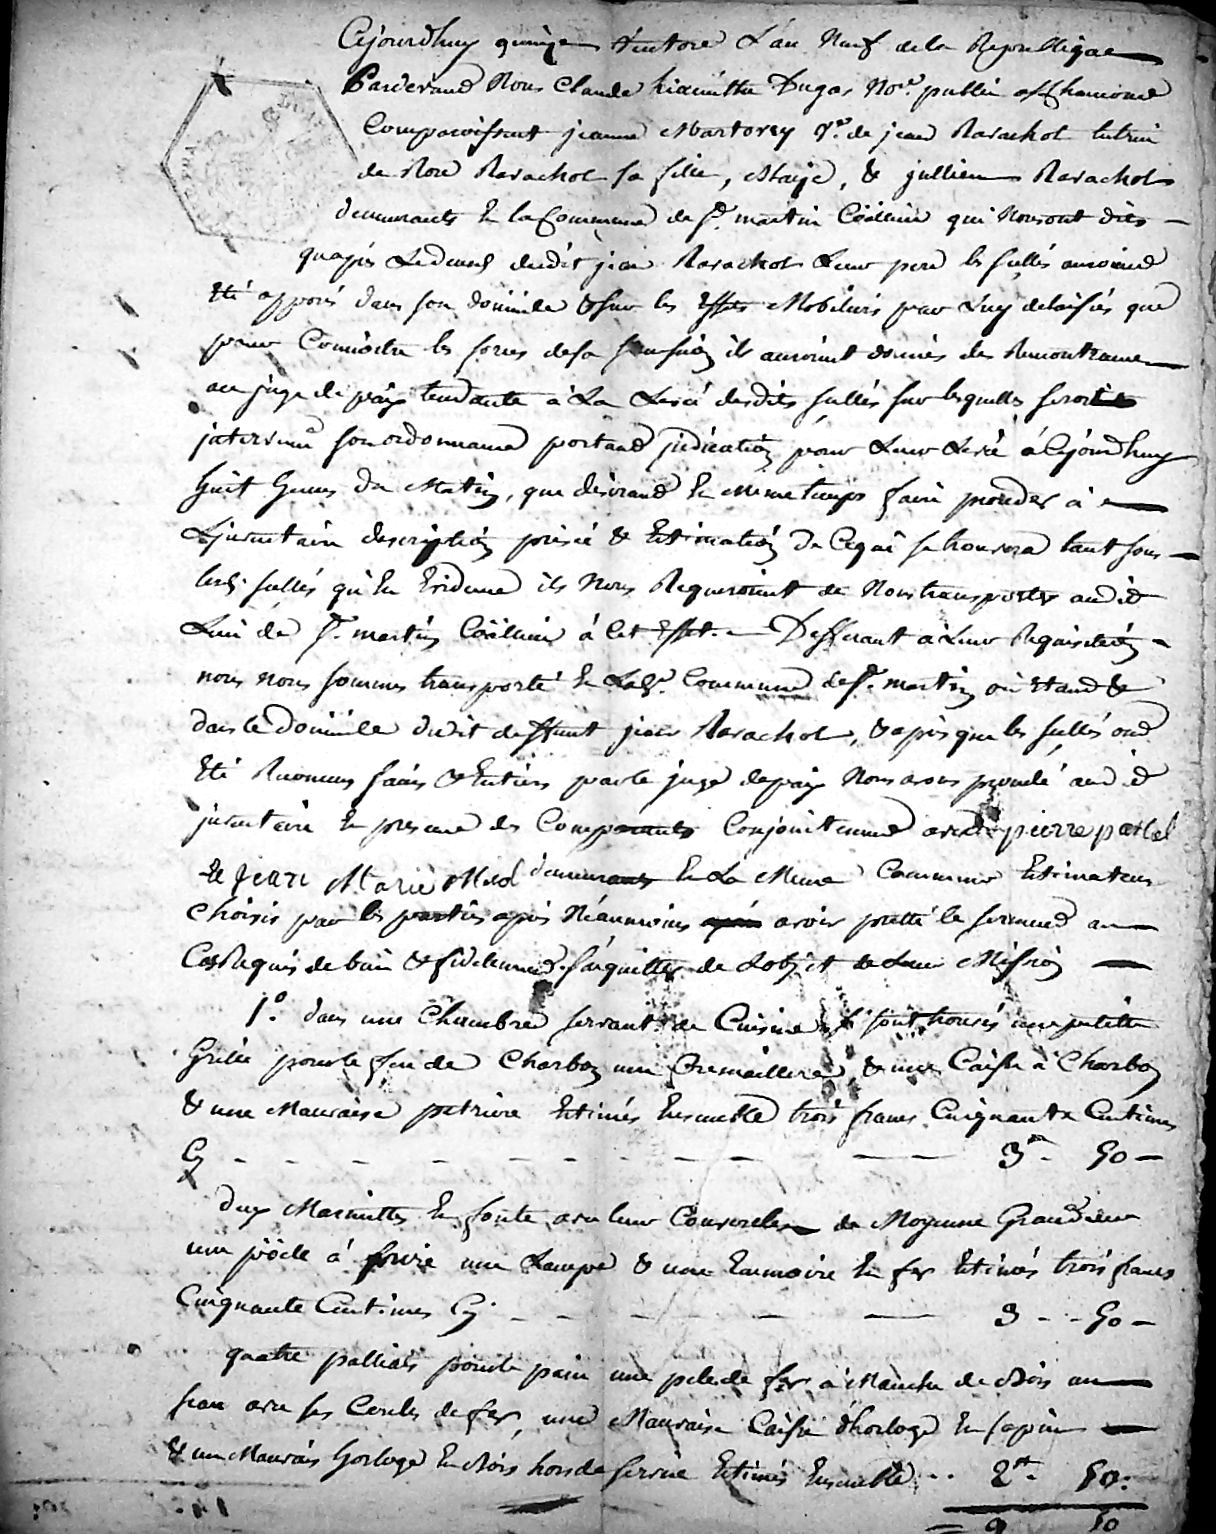 Cejourdhuy quinze Ventose L'an Neuf de la Republique
Pardevand Nous Claude hiacinthe Dugas Nore. public a St chamond
Comparoissent jeanne Martorey Ve. de jean Ravachol tutrice
de Rose Ravachol sa fille, & jullien Ravachol
demeurants En la Commune de St. martin Coailleux qui Nous ont dits
quapres Le deces dudit jean Ravachol Leur pere les scellés auroient
Eté apposés dans son domicile & sur les Effets Mobiliers par Luy delaissés que
pour Connoitre les forces de sa succession ils auroient donnés des Remontrances
au juge de paix tendante a La Levé desdits scellés sur lesquelles seroit
intervenue son ordonnance portand jndication pour Leur Levé a Cejourdhuy
huit heures du Matin, que desirand En meme temps faire proceder a
Ljnventaire description prisée & Estimation De Ce qui se trouvera tant sous
lesd. scellés qu'En Evidence ils Nous Requeroient de Nous transporter audit
Lieu de St. martin Coailleux à Cet Effet. Defferant a Leur Requisition
nous nous sommes transporté En Lade. Commune de St. martin où Etand &
dans le Domicile dudit deffunt jean Ravachol, & apres que les scellés ont
Eté Reconnus sains & Entiers par le juge de paix Nous avons procedé audit
jnventaire En presence des Comparants Conjointement avec pierre patel
Et jean Marie demeurants En La Meme Commune Estimateurs
Choisis par les parties apres Neanmoins avoir pretté le serment au
Cas Requis de bien & fidellement s'acquitter de Lobjet de Leur Mission
1o. dans une Chambre servant de Cuisine s'y sont trouvés une petitte
Grille pour le feu de Charbon une Cremaillere & une Caisse a Charbon
& une Mauvaise petriere Estimés Ensemble trois francs Cinquante Centimes
Cy - - - - - - - - - 3fr - 50 -
deux Marmittes En fonte avec leur Couvercles de Moyenne Grandeur
une poële à frire une Lampe & une En fer Estimés trois francs
Cinquante Centimes Cy - - - - - - 3 - - 50 -
quatre palliats pour le pain une pele de fer a Manche de Bois un
seau avec ses Cercles de fer, une Mauvaise Caisse d'horloge En sapin
& un Mauvais horloge En Bois hors de service Estimés Ensemble .. 2fr. 50.
= 9 50